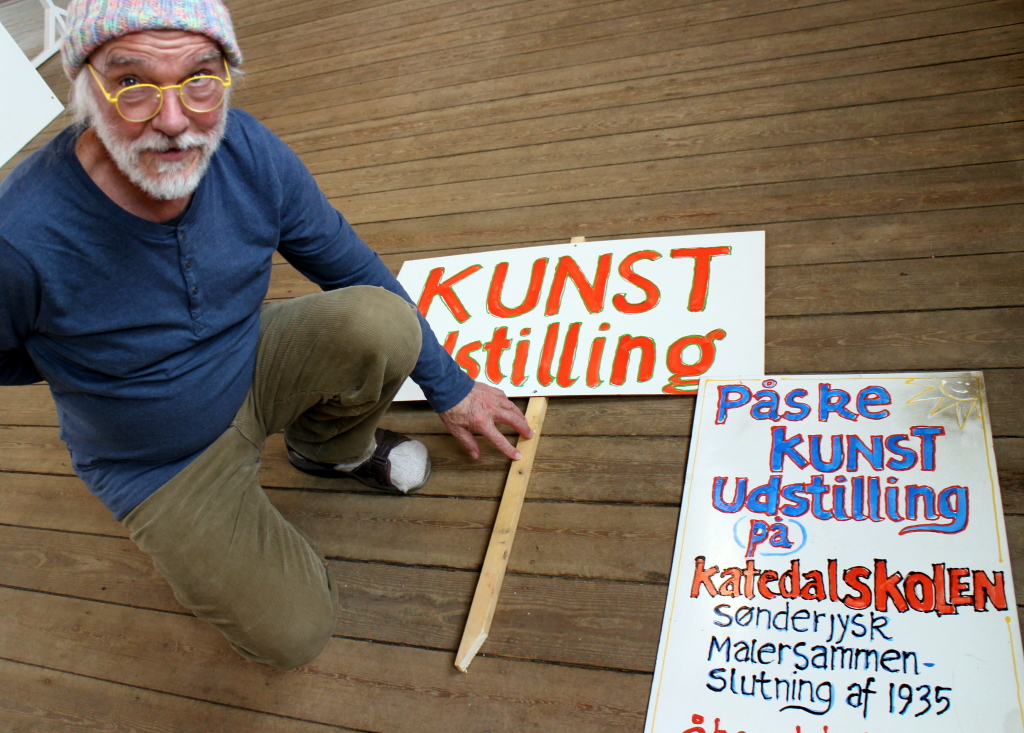 KUNST
Udstilling
Påske
KUNST
Udstilling
på
katedalSKOLEN
sønderjysk
Malersammen-
slutning af 1935